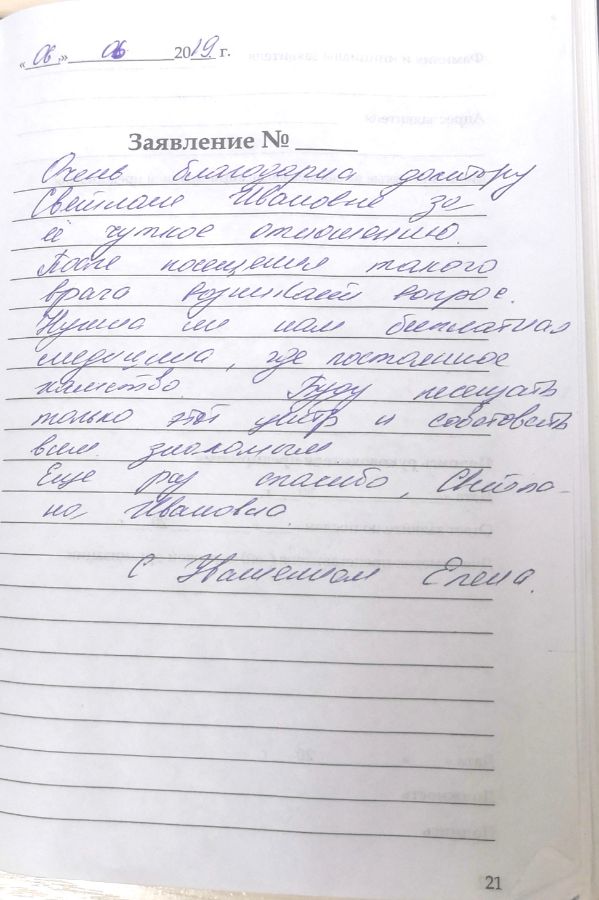 « 06 » 06 2019 г.
Заявление № ______
Очень благодарна доктору
Светлане Ивановне за
её чуткое отношению.
После посещения такого
врача возникает вопрос.
Нужна ли нам бесплатная
медицина, где постоянное
хамство. Буду посещать
только этот центр и советовать
всем знакомым
Еще раз спасибо, Светла-
на Ивановна.
С Уважением Елена.
21